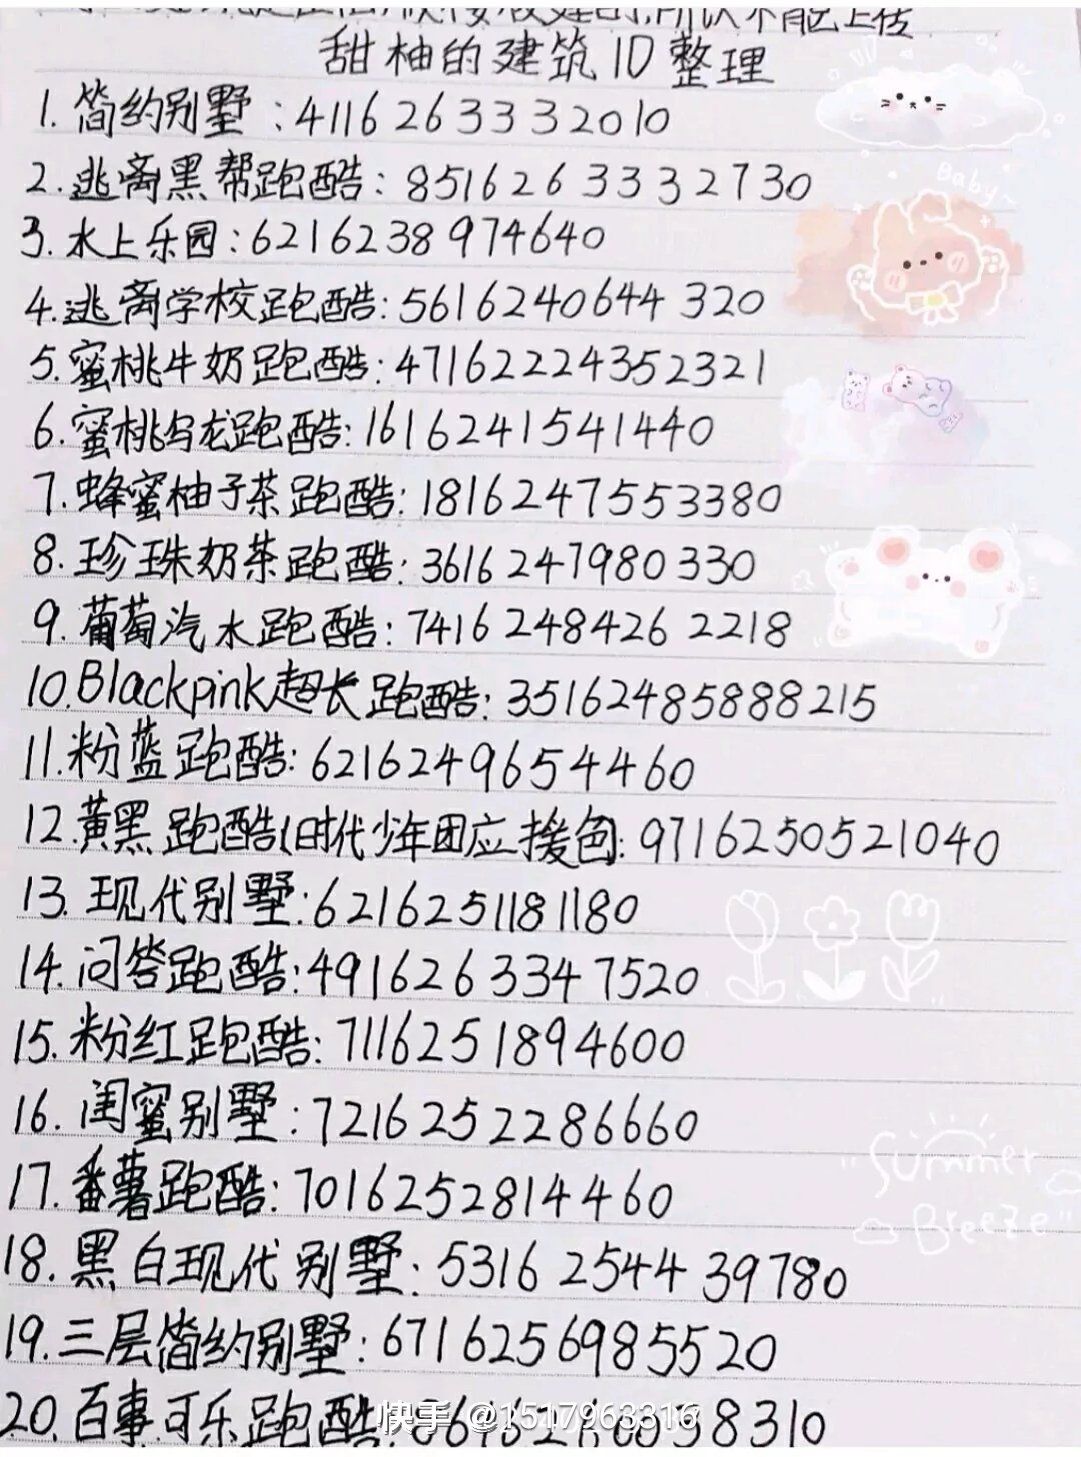 甜柚的建筑ID整理
1.简约别墅:4116263332010
Baby~
2.逃离黑帮跑酷:8516263332730
3.水上乐园:6216238974640
4.逃离学校跑酷:5616240644320
5.蜜桃牛奶跑酷:47162224352321
6.蜜桃乌龙跑酷:1616241541440
7.蜂蜜柚子茶跑酷:1816247553380
8.珍珠奶茶跑酷:3616247980330
9.葡萄汽水跑酷:74162484262218
10.Blackpink超长跑酷:35162485888215
11.粉蓝跑酷:6216249654460
12.黄黑跑酷(时代少年团应援色:9716250521040
13.现代别墅:6216251181180
14.问答跑酷:4916263347520
15.粉红跑酷:7116251894600
16.闺蜜别墅:7216252286660
17.番薯跑酷:7016252814460
"Summer
Breeze"
18.黑白现代别墅:5316254439780
19.三层简约别墅:6716256985520
20.百事可乐跑酷
快手 @1517963316